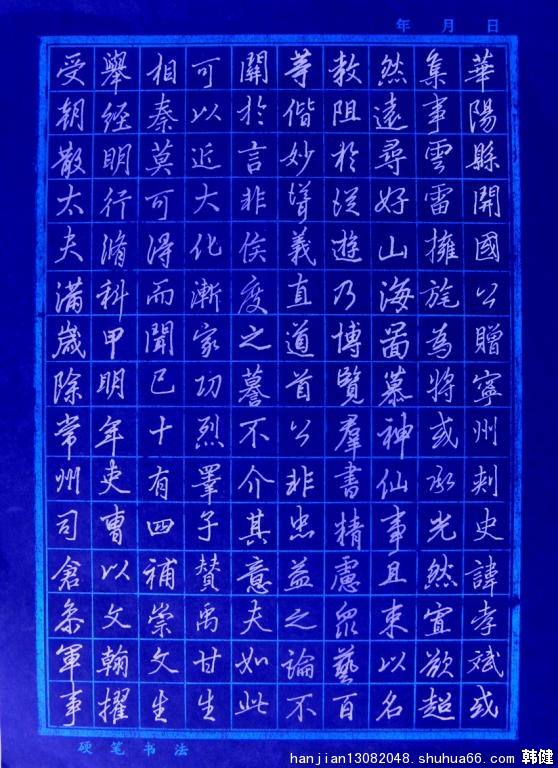 年 月 日
華陽縣開國公贈寧州刺史諱孝斌或
集事雲雷擁旄為將或承光然宣欲超
然遠尋好山海啚慕神仙事且束以名
教阻於從遊乃博覽羣書精慮眾藝百
等偕妙聳義直道首公非忠益之論不
關於言非侯度之謩不介其意夫如此
可以近大化漸家功烈睪子贊禹甘生
相秦莫可得而聞已十有四補崇文生
舉經明行脩科甲明年吏曹以文翰擢
受朝散太夫滿歲除常州司倉叅軍事
硬笔书法
hanjian13082048.shuhua66.com 韩健